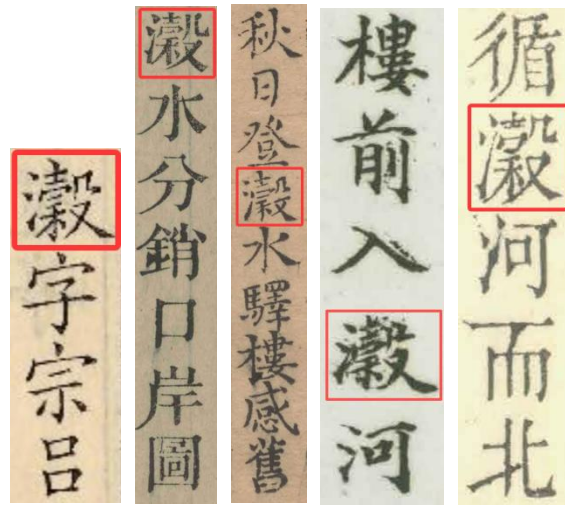 瀫字宗吕
瀫水分銷口岸圖
秋日登瀫水驛樓感舊
樓前入瀫河
循瀫河而北